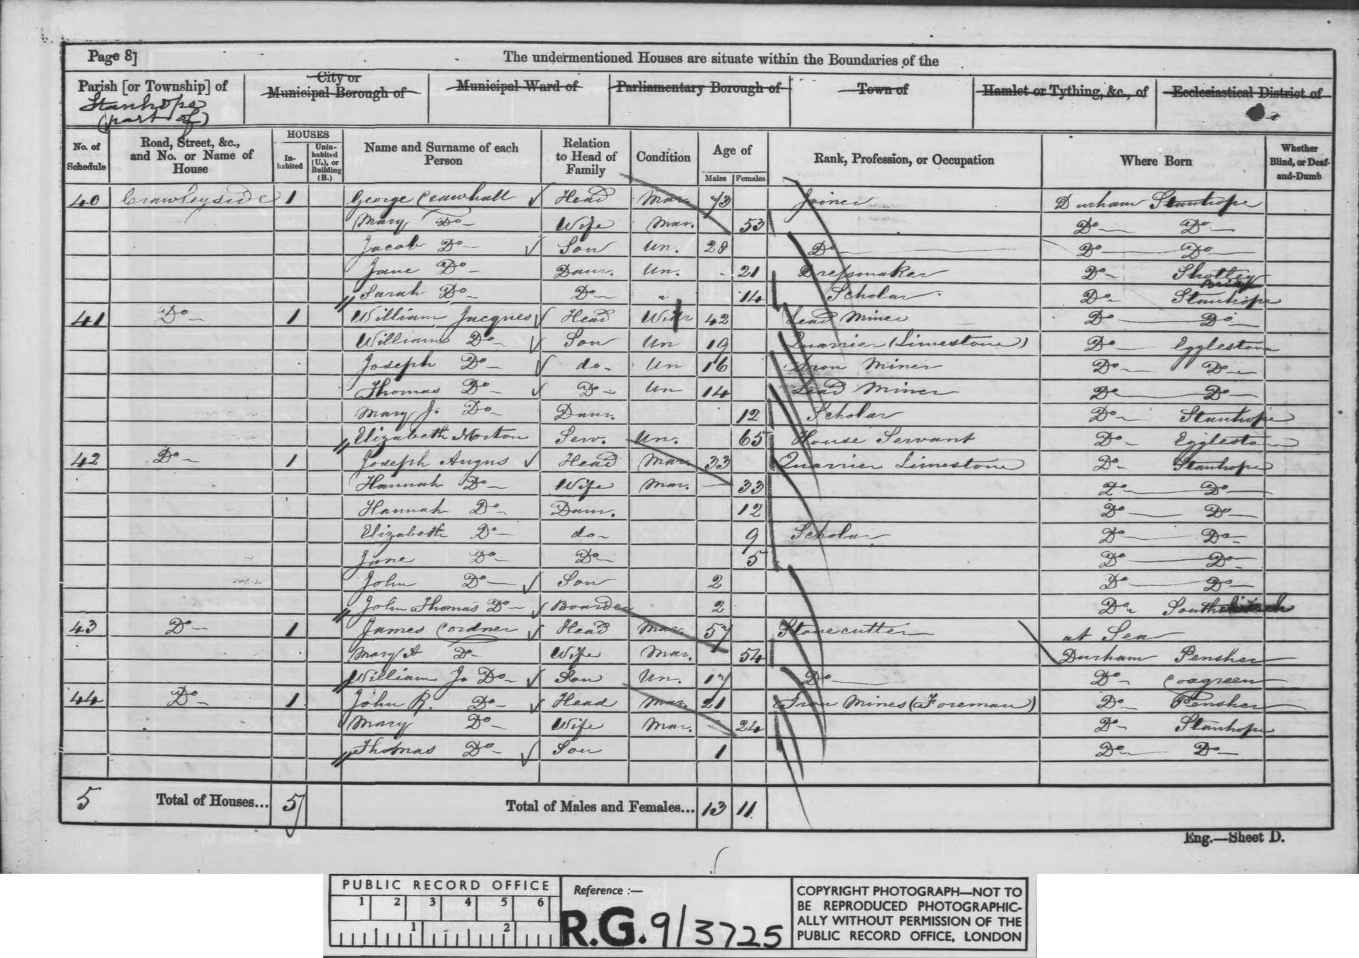 Page 8]
The undermentioned Houses are situate within the Boundaries of the
Parish [or Township] of
Stanhope
(part of)
City or
Municipal Borough of
Municipal Ward of
Parliamentary Borough of
Town of
Hamlet or Tything, &c., of
Ecclesiastical District of
No. of Schedule
Road, Street, &c., and No. or Name of House
HOUSES
Inhabited
Uninhabited (U.), or Building (B.)
Name and Surname of each Person
Relation to Head of Family
Condition
Age of
Males
Females
Rank, Profession, or Occupation
Where Born
Whether Blind, or Deaf-and-Dumb
40 Crawleyside 1 George Crawhall Head Mar. 73 Joiner Durham Stanhope
Mary Do Wife Mar. 53 Do Do
Jacob Do Son Un. 28 Do Do Do
Jane Do Daur. Un. 21 Dressmaker Do Shotley
Sarah Do Do 14 Scholar Do Stanhope
41 Do 1 William Jacques Head Widr 42 Lead Miner Do Do
William Do Son Un 19 Quarrier (Limestone) Do Egglestone
Joseph Do do. Un 16 Iron Miner Do Do
Thomas Do Do Un 14 Lead Miner Do Do
Mary J. Do Daur. 12 Scholar Do Stanhope
Elizabeth Morton Serv. Un. 65 House Servant Do Egglestone
42 Do 1 Joseph Angus Head Mar. 33 Quarrier Limestone Do Stanhope
Hannah Do Wife Mar. 33 Do Do
Hannah Do Daur. 12 Do Do
Elizabeth Do do 9 Scholar Do Do
Jane Do Do 5 Do Do
John Do Son 2 Do Do
John Thomas Do Boarder 2 Do
43 Do 1 James Cordner Head Mar. 57 Stonecutter at Sea
Mary A Do Wife Mar. 54 Durham Pensher
William Jo Do Son Un. 17 Do Do Coxgreen
44 Do 1 John R. Do Head Mar. 21 Iron Mines (Foreman) Do Pensher
Mary Do Wife Mar. 24 Do Stanhope
Thomas Do Son 1 Do Do
5 Total of Houses... 5 Total of Males and Females... 13 11
Eng.—Sheet D.
PUBLIC RECORD OFFICE
1 2 3 4 5 6
1 2
Reference :—
R.G. 9/3725
COPYRIGHT PHOTOGRAPH—NOT TO
BE REPRODUCED PHOTOGRAPHIC-
ALLY WITHOUT PERMISSION OF THE
PUBLIC RECORD OFFICE, LONDON